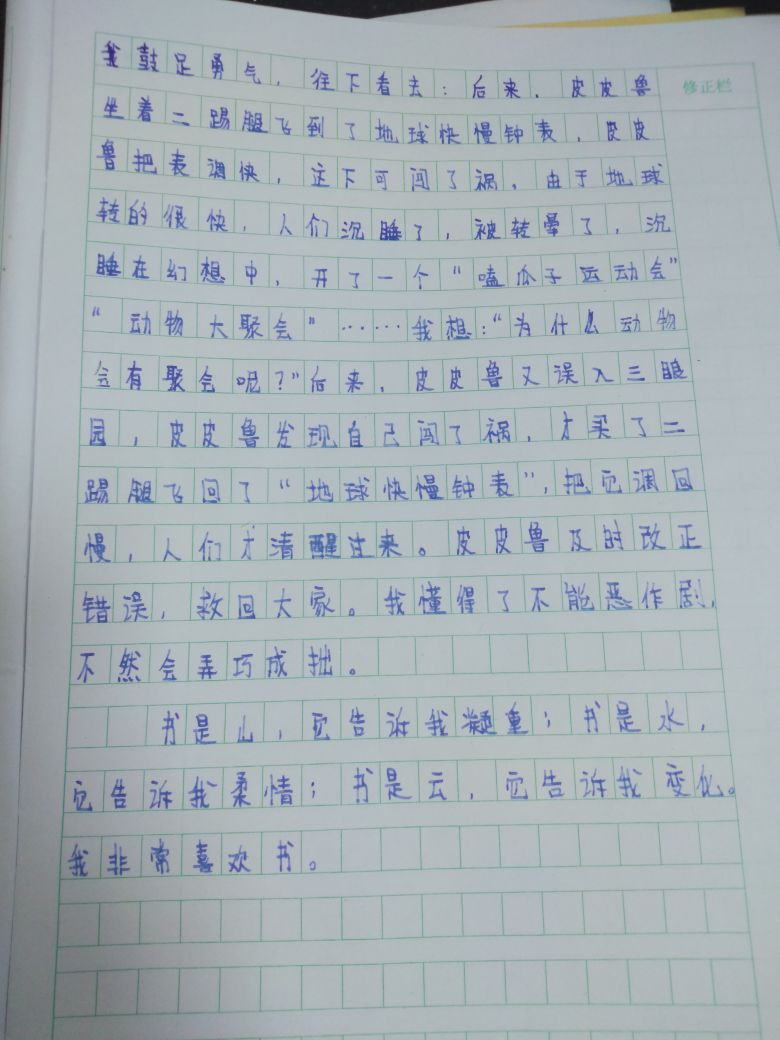 我鼓足勇气，往下看去：后来，皮皮鲁
修正栏
坐着二踢腿飞到了地球快慢钟表，皮皮
鲁把表调快，这下可闯了祸，由于地球
转的很快，人们沉睡了，被转晕了，沉
睡在幻想中，开了一个“嗑瓜子运动会”
“动物大聚会”……我想：“为什么动物
会有聚会呢？”后来，皮皮鲁又误入三眼
园，皮皮鲁发现自己闯了祸，才买了二
踢腿飞回了“地球快慢钟表”，把它调回
慢，人们才清醒过来。皮皮鲁及时改正
错误，救回大家。我懂得了不能恶作剧，
不然会弄巧成拙。
书是山，它告诉我凝重；书是水，
它告诉我柔情；书是云，它告诉我变化。
我非常喜欢书。